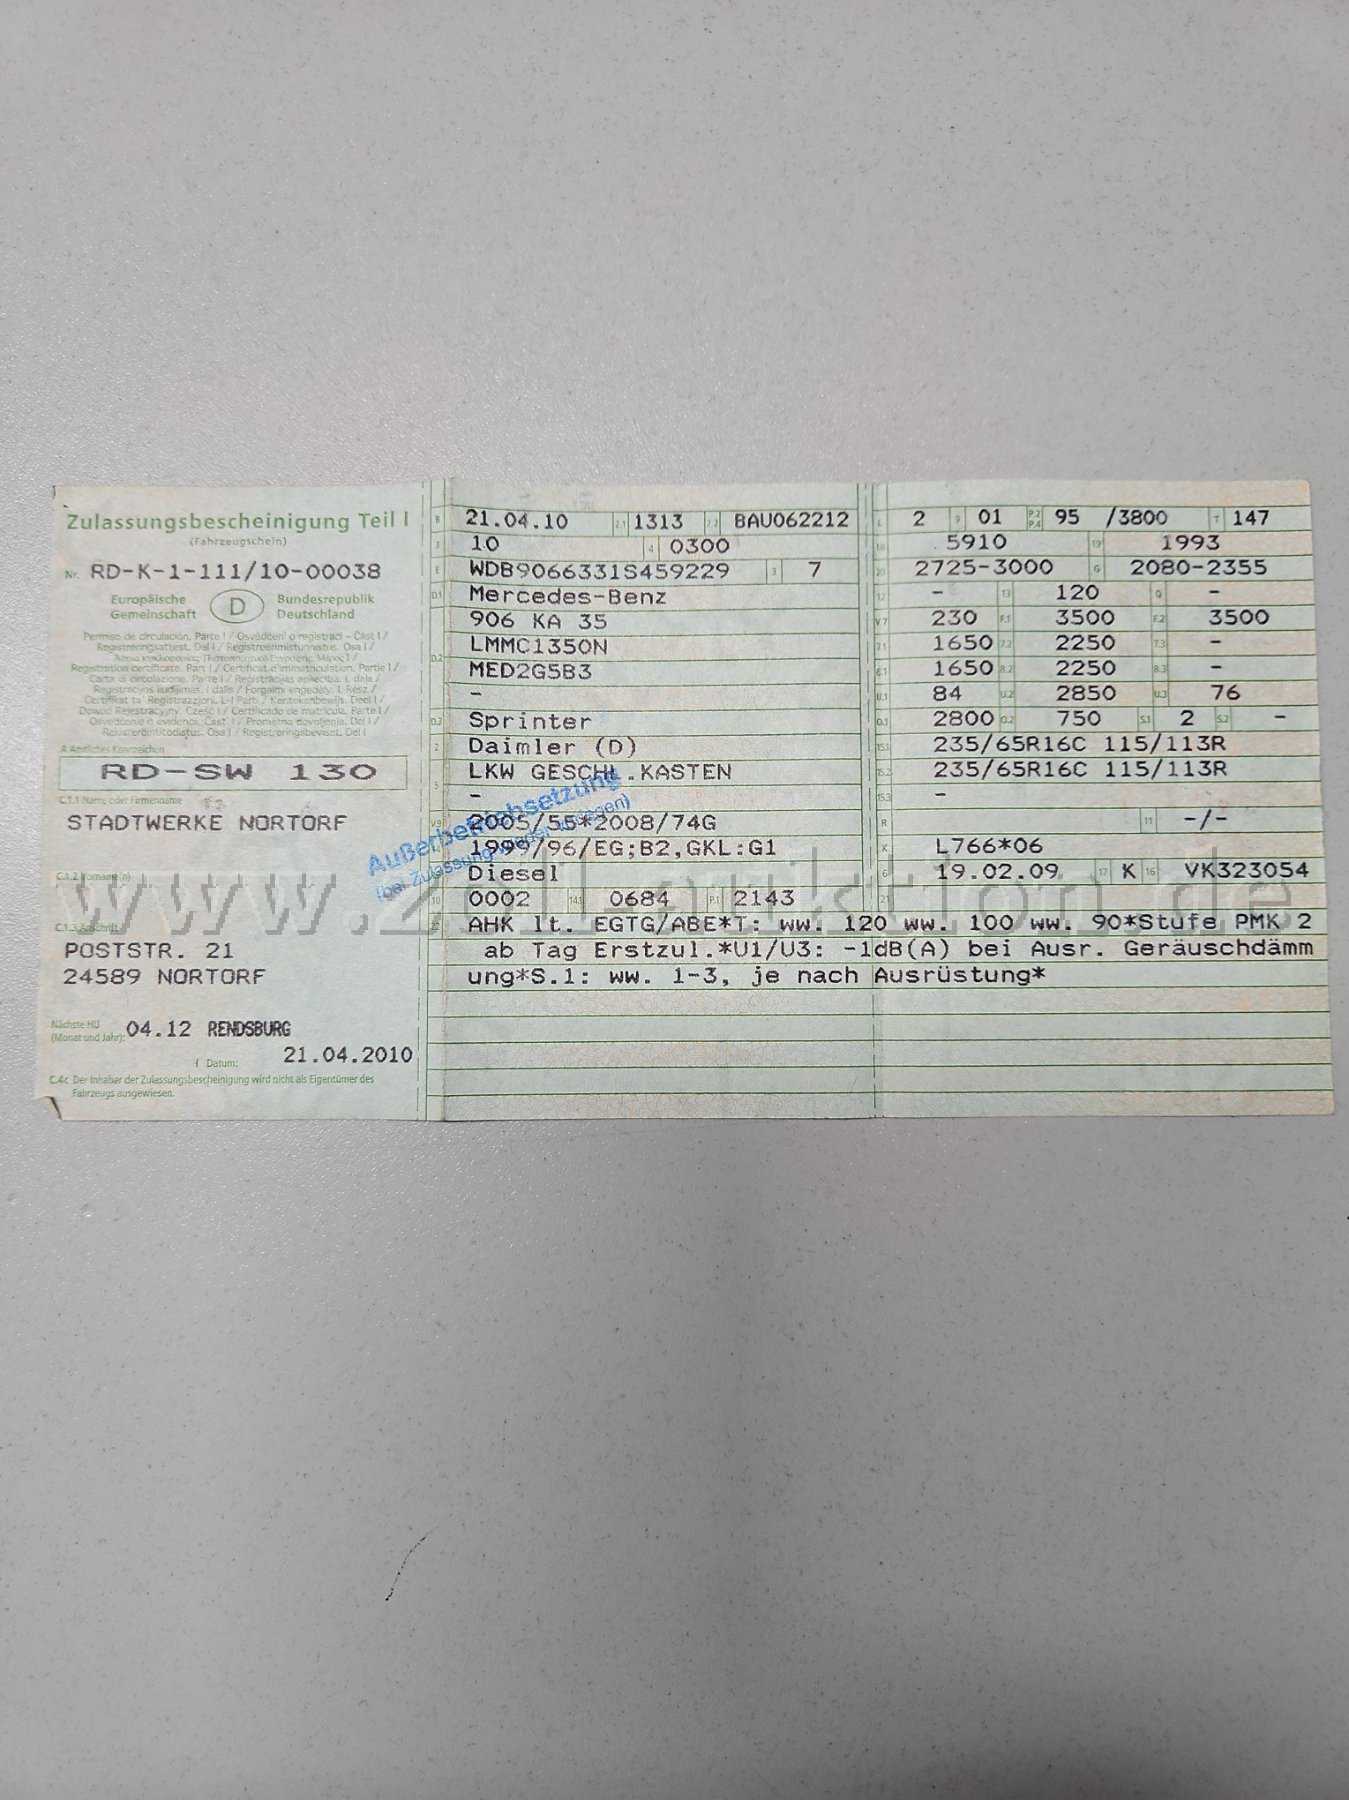 Zulassungsbescheinigung Teil I
(Fahrzeugschein)
Nr. RD-K-1-111/10-00038
Europäische Gemeinschaft D Bundesrepublik Deutschland
Permiso de circulación. Parte I / Osvědčení o registraci - Část I /
Registreringsattest. Del I / Registreerimistunnistus. Osa I /
Registration certificate. Part I / Certificat d'immatriculation. Partie I /
Carta di circolazione. Parte I /
A Amtliches Kennzeichen
RD-SW 130
C.1.1 Name oder Firmenname
STADTWERKE NORTORF
C.1.2 Vorname(n)
C.1.3 Anschrift
POSTSTR. 21
24589 NORTORF
Nächste HU
(Monat und Jahr): 04.12 RENDSBURG
Datum: 21.04.2010
C.4c Der Inhaber der Zulassungsbescheinigung wird nicht als Eigentümer des
Fahrzeugs ausgewiesen.
B 21.04.10 2.1 1313 2.2 BAU062212
J 10 4 0300
E WDB9066331S459229 3 7
D.1 Mercedes-Benz
906 KA 35
D.2 LMMC1350N
MED2G5B3
-
D.3 Sprinter
2 Daimler (D)
5 LKW GESCHL.KASTEN
-
V.9 2005/55*2008/74G
1999/96/EG;B2,GKL:G1
Diesel
10 0002 14.1 0684 P.1 2143
L 2 9 01 P.2 P.4 95 /3800 T 147
18 5910 19 1993
20 2725-3000 G 2080-2355
12 - 13 120 Q -
V.7 230 F.1 3500 F.2 3500
7.1 1650 7.2 2250 7.3 -
8.1 1650 8.2 2250 8.3 -
U.1 84 U.2 2850 U.3 76
O.1 2800 O.2 750 S.1 2 S.2 -
15.1 235/65R16C 115/113R
15.2 235/65R16C 115/113R
15.3 -
R 11 -/-
K L766*06
6 19.02.09 17 K 16 VK323054
21
22 AHK lt. EGTG/ABE*T: ww. 120 ww. 100 ww. 90*Stufe PMK 2
ab Tag Erstzul.*U1/U3: -1dB(A) bei Ausr. Geräuschdämm
ung*S.1: ww. 1-3, je nach Ausrüstung*
Außerbetriebsetzung
(bei Zulassung wieder vorlegen)
www.zoll-auktion.de